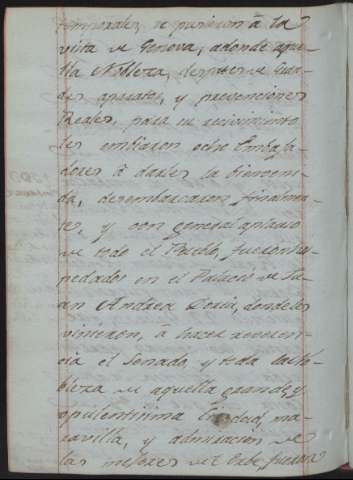 temporales, se pusieron â la
vista de Genova, adonde aque-
lla Nobleza, despues de Gran-
des aparatos, y prevenciones
Reales, para su recivimiento
les embiaron ocho Embaja-
dores â darles la bienveni-
da, desembarcaron finalmen-
te, y con general aplauso
de todo el Pueblo, fueron os-
pedados en el Palacio de Ju-
an Andrea Doria, donde les
vinieron, â hacer reveren-
cia el Senado, y toda la No-
bleza de aquella grande, y
opulentisima Ciudad, ma-
ravilla, y admiracion de
las mejores del Orbe, fueron